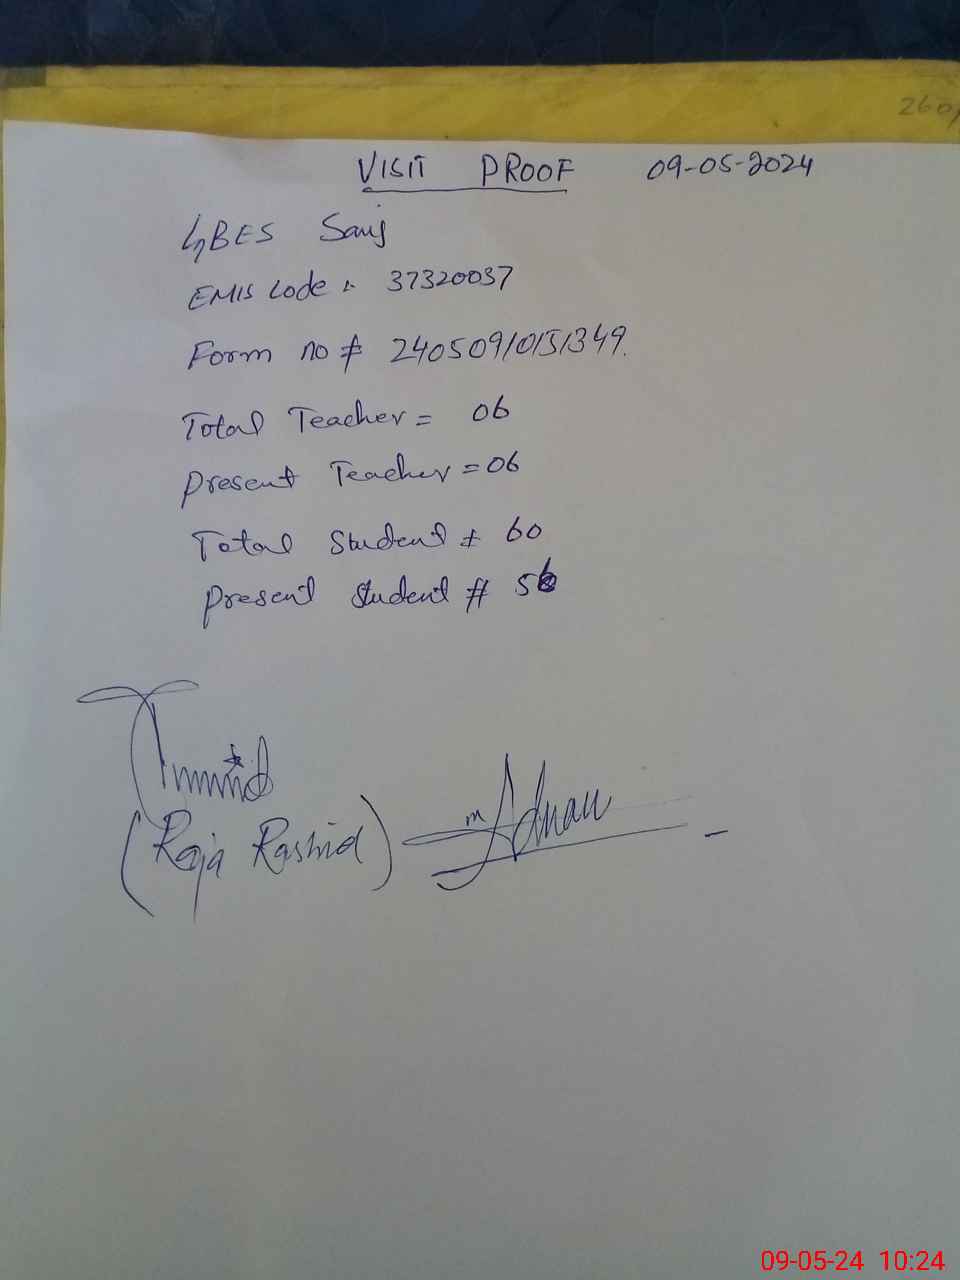 260
VISIT PROOF 09-05-2024
GBES Sanj
EMIS Code :. 37320037
Form no # 24050910151349.
Total Teacher = 06
Present Teacher = 06
Total Student # 60
Present Student # 56
(Raja Rashid)
m Adnan
09-05-24 10:24